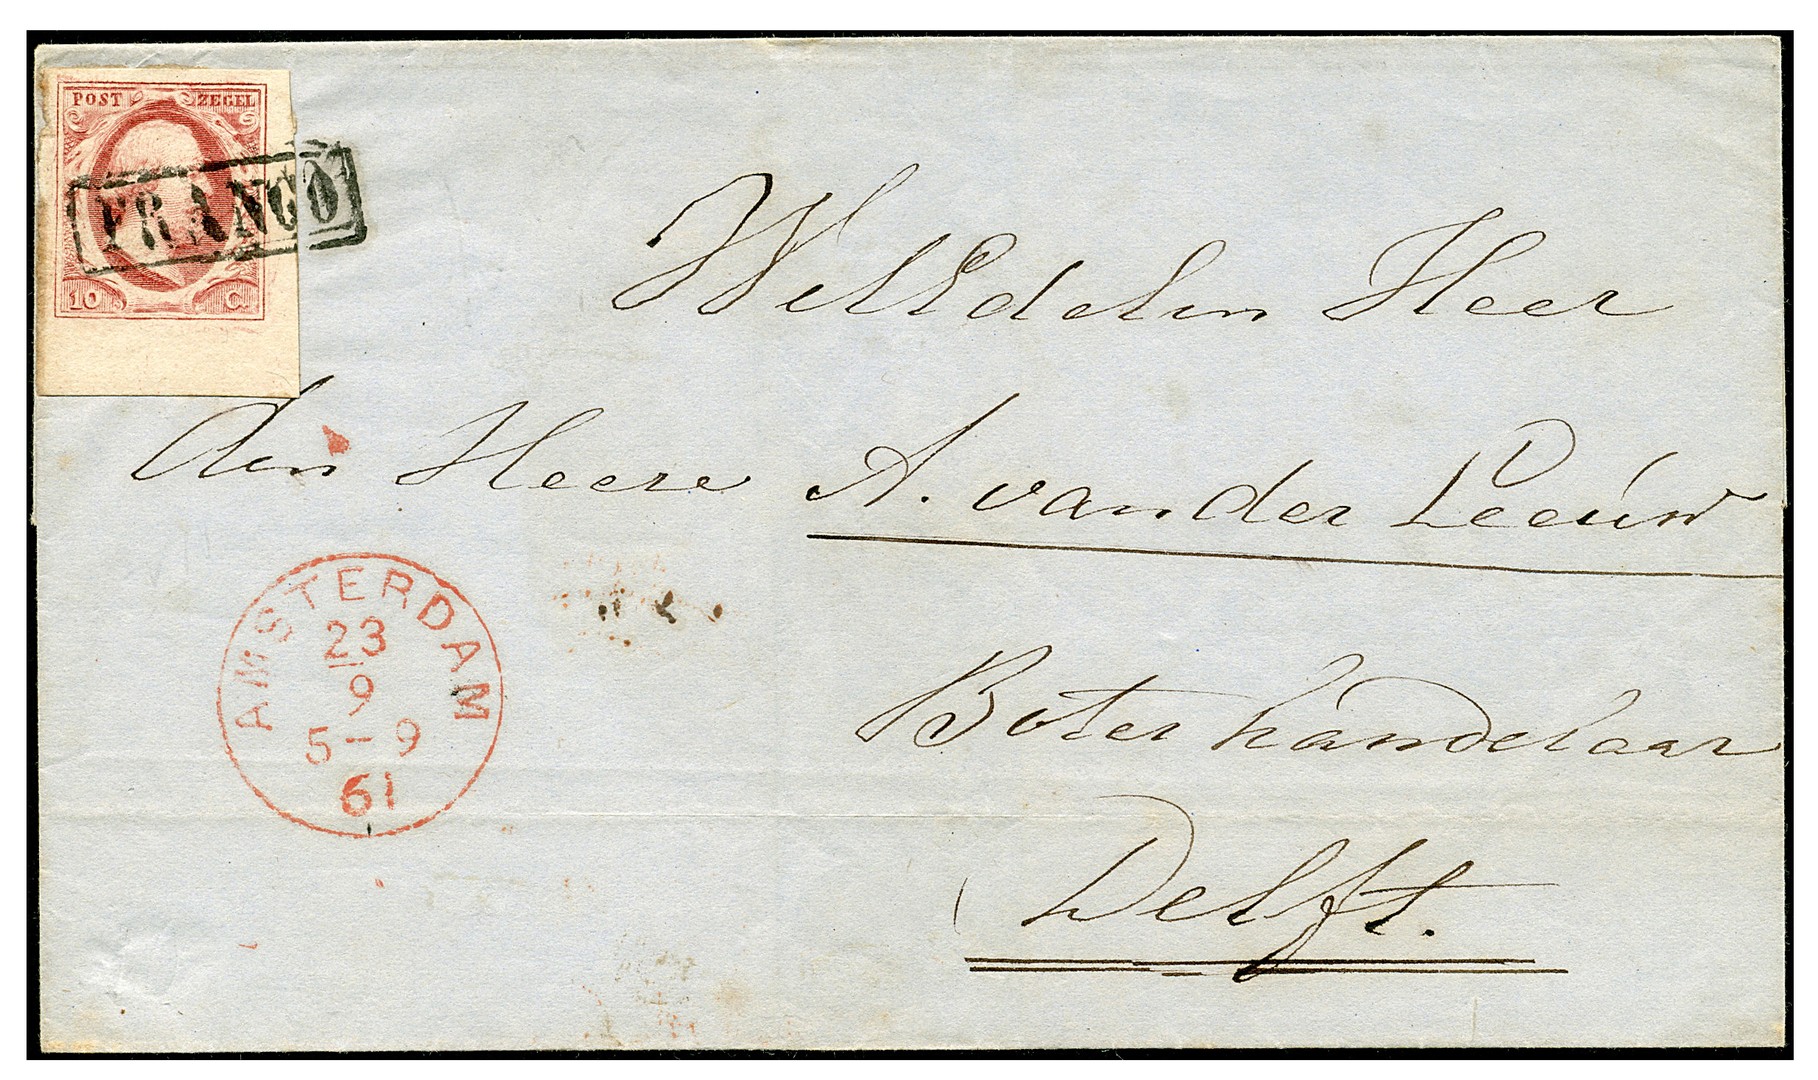 POST ZEGEL
FRANCO
10 C.
WelEdelen Heer
den Heere A. van der Leeuw
Boterhandelaar
Delft.
AMSTERDAM
23
9
5-9
61